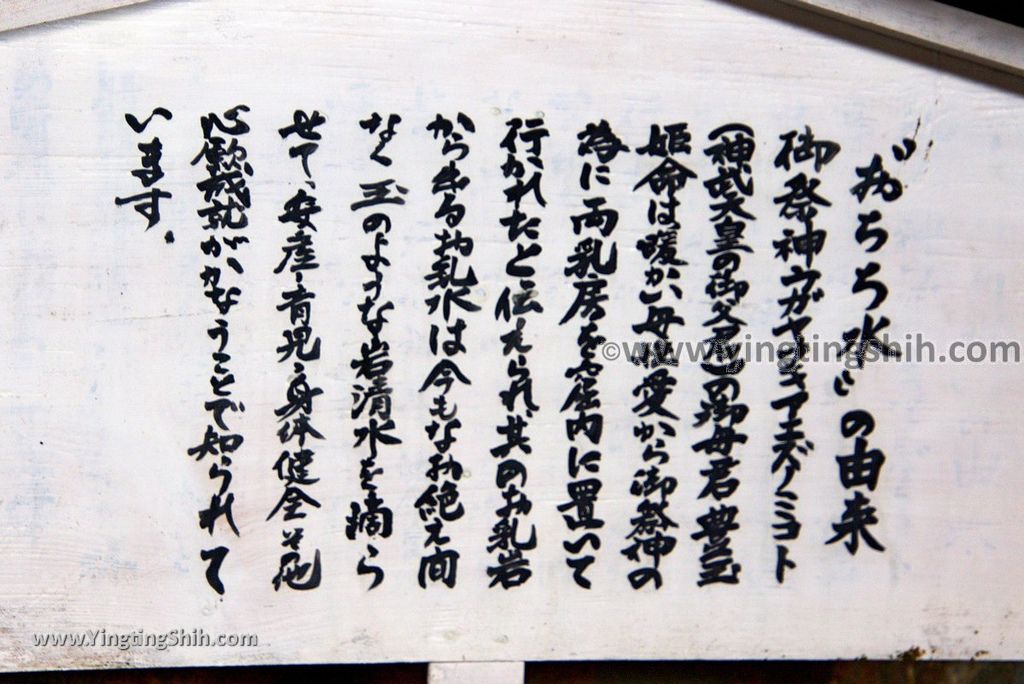 "おちち水"の由来
御祭神ウガヤフキアエズノミコト
(神武天皇の御父君)の御母君豊玉
姫命は暖かい母性愛から御祭神の
為に両乳房を窟内に置いて
行かれたと伝えられ、其のお乳岩
から出るお乳水は今もなお絶え間
なく玉のような岩清水を滴ら
せて、安産・育児・身体健全等他
心願成就がかなうことで知られて
います。
©www.YingtingShih.com
www.YingtingShih.com